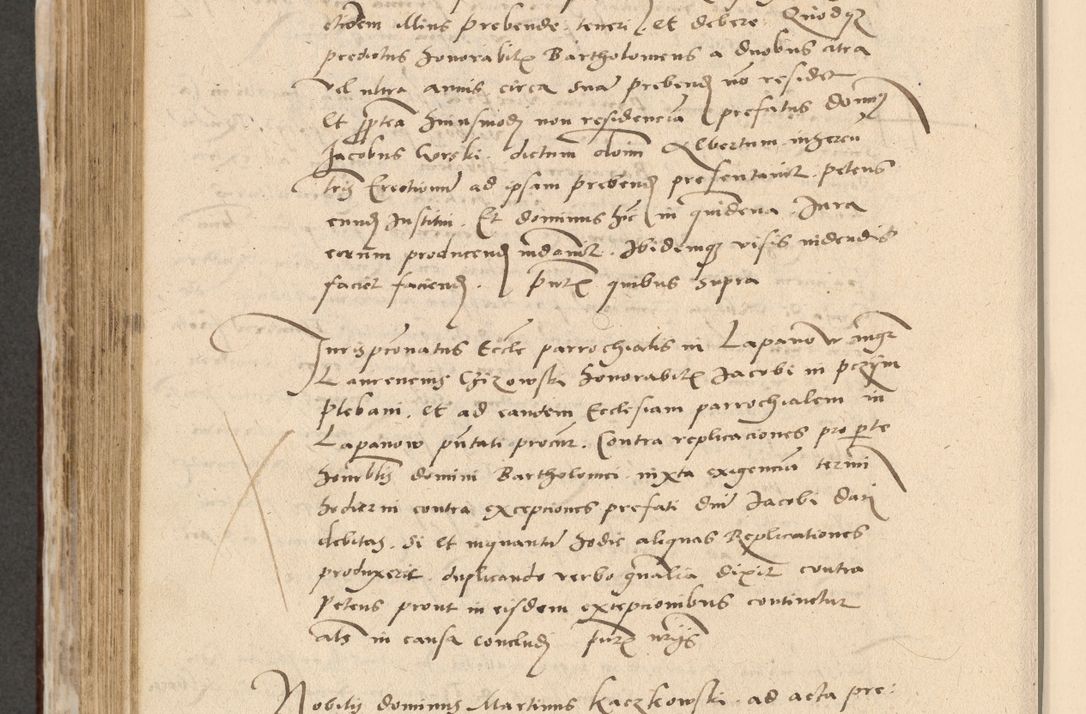 etidem illius prebende teneri et debere Quodqz
predictus honorabilis Bartholomeus a duobus citra
vel ultra annis circa sua prebend non residet
Et propterea huiusmodi non residencia prefatus domi
Jacobus Gorski dictum olim Albertum
Erectionum ad ipsam prebend presentavit petens
eund Institui Et dominus hoc in quindena Jura
eorum producend mdavit Ibidemqz visis videndis
faciet faciend putx quibus supra
Jurispronatus Eccle parrochialis in Lapanow
Laurencius honorabilis Jacobi in
Plebani et ad eandem Ecclesiam parrochialem in
Lapanow pntati procur Contra replicaciones pro parte
honorablis domini Bartholomei iuxta exigencia termi
hodierni contra excepciones prefati dni Jacobi dari
debitas si et inquantu hodie aliquas Replicationes
produxerit duplicando verbo gnalia dixit contra
petens prout in eisdem excepcionibus continetur
als in causa concludi
Nobilis dominus Martinus Kaczkowski ad acta pre: